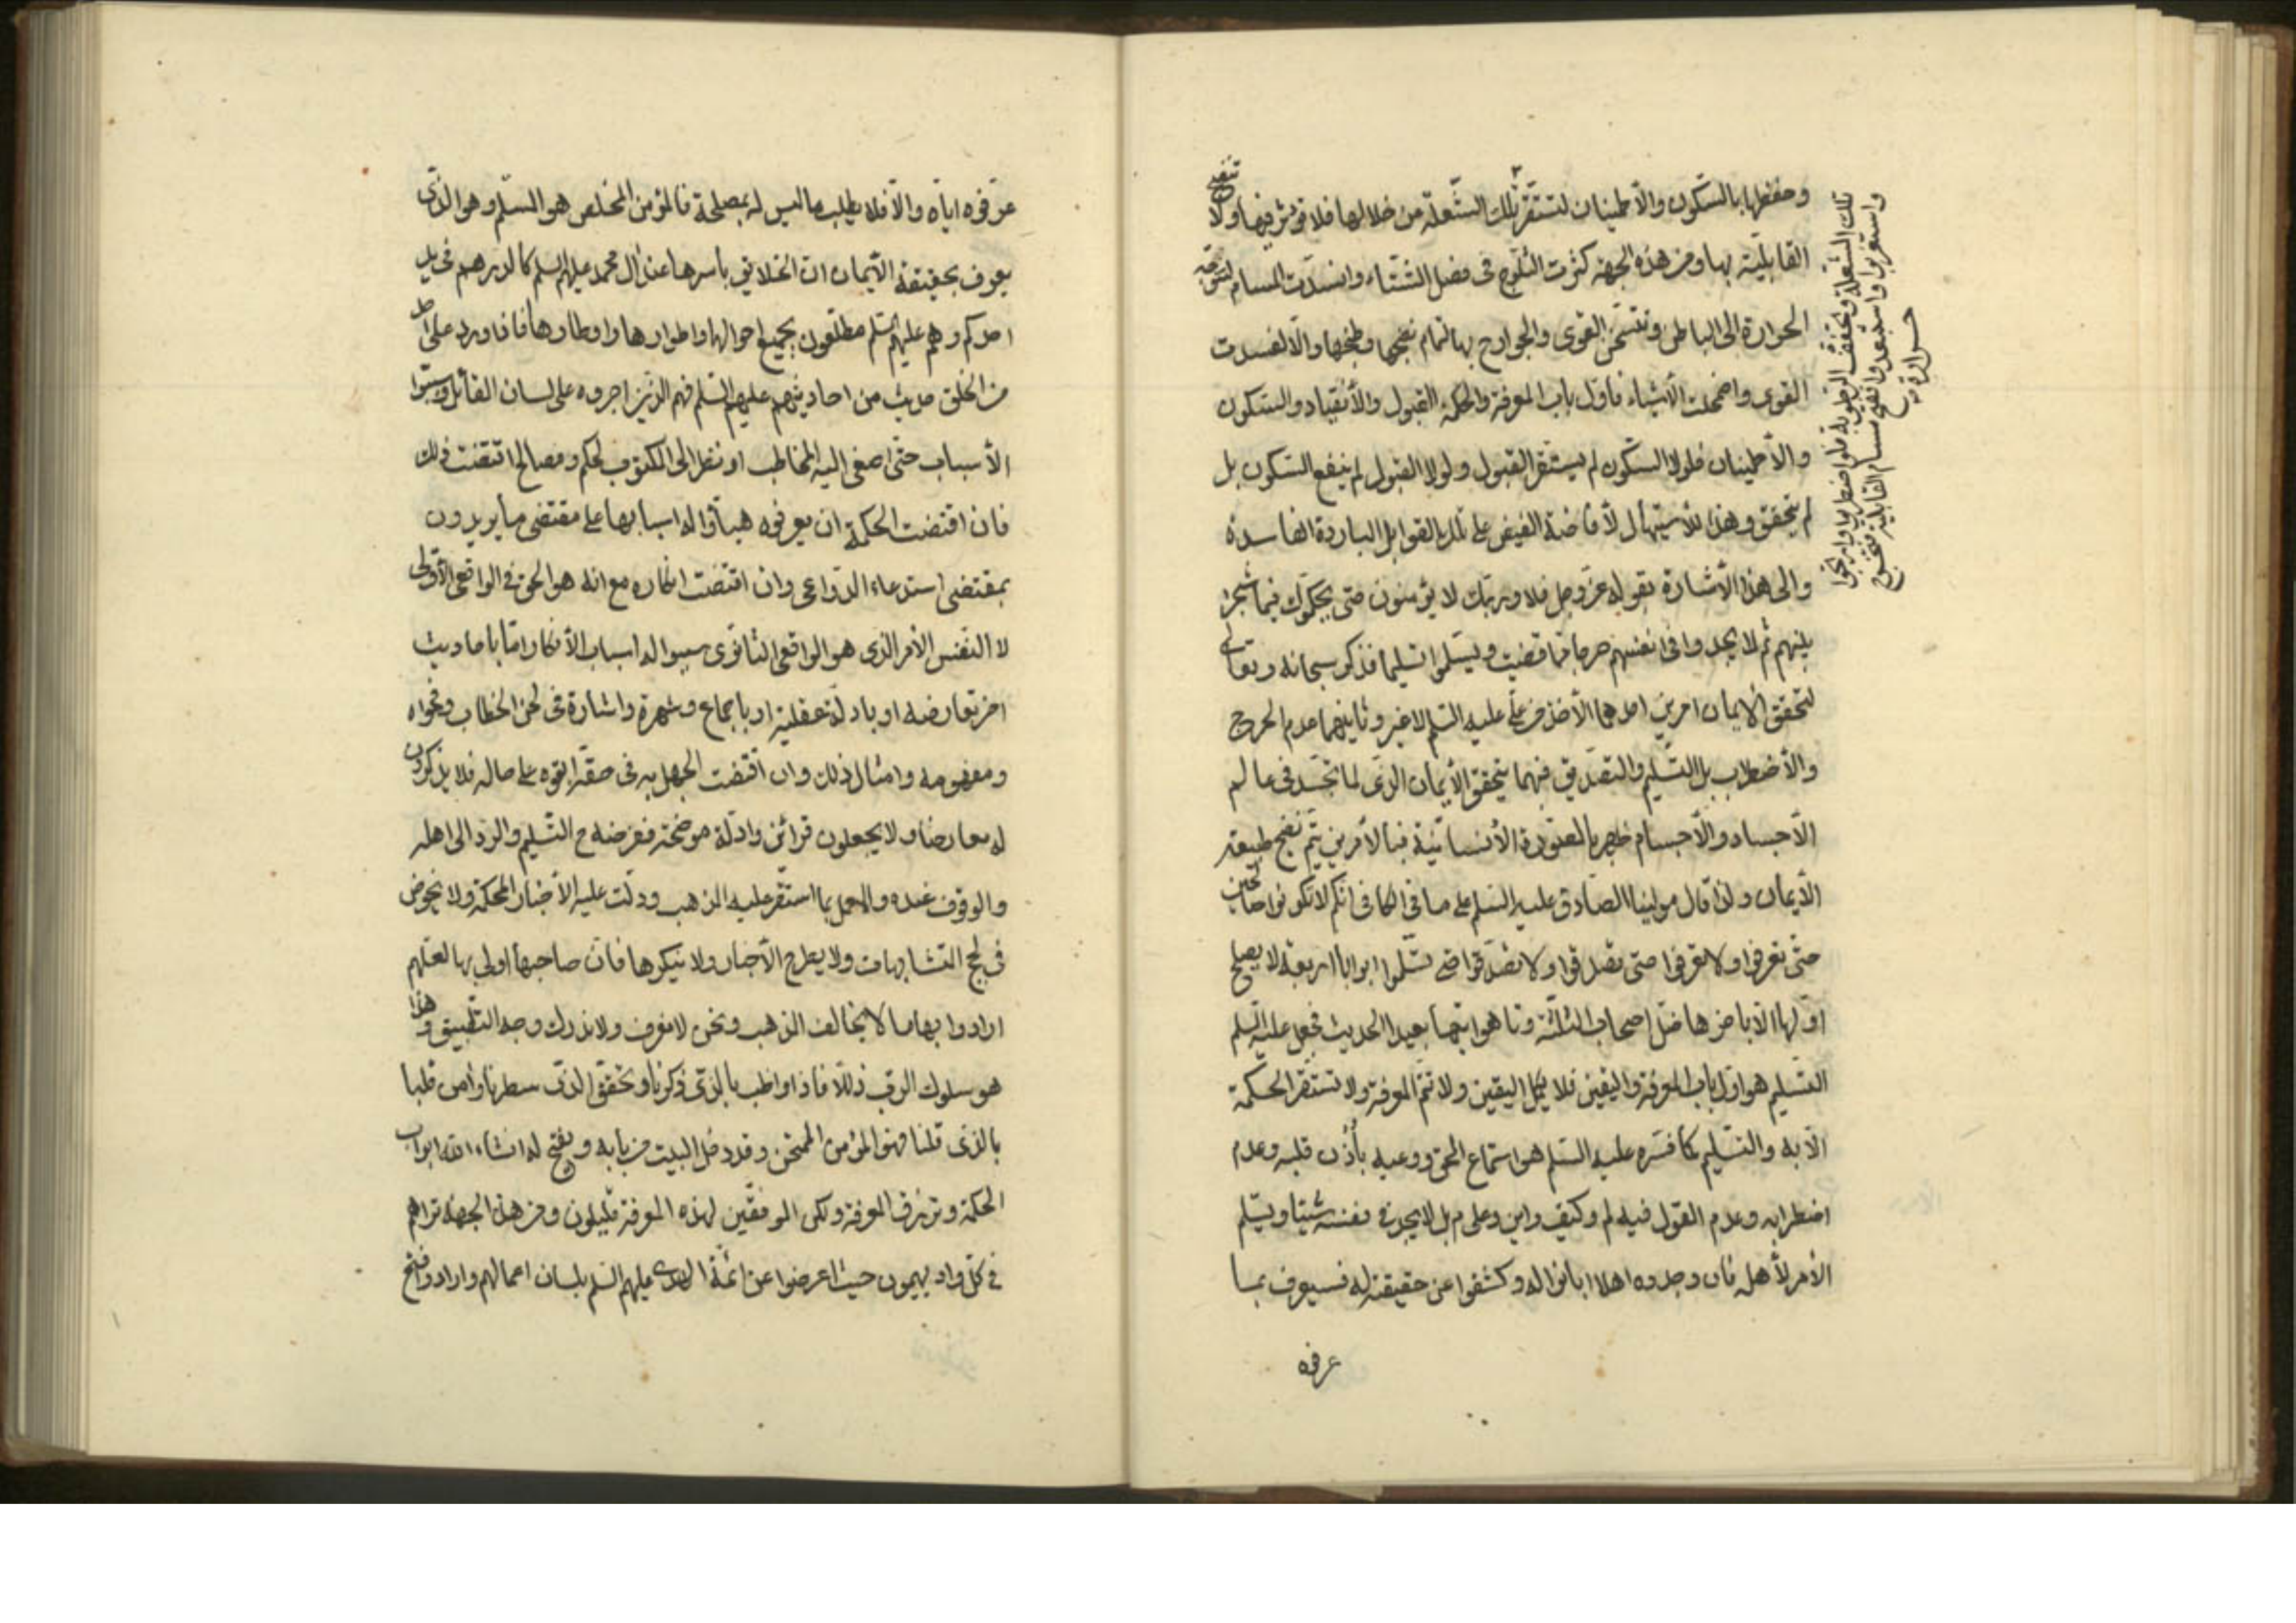 وحفظها بالسكون والأطمينان لتستقر تلك الشعلة من خلالها فلا تؤثر فيها ولا تنضج
القابلية بها ومن هذه الجهة كثرت الثلوج فى فصل الشتاء وانسدت المسام لتتوجه
الحرارة الى الباطن وتتسخن القوى والجوارح بها تمام نضجها وطبخها والا لفسدت
القوى واضمحلت الأشياء فاول باب المعرفة والحكمة القبول والأنقياد والسكون
والأطمينان فلولا السكون لم يستقر القبول ولولا القبول لم ينفع السكون بل
لم يتحقق وهذا للأستيهال لأفاضة الفيض على تلك القوابل الباردة الفاسدة
والى هذا الأشارة بقوله عز وجل فلا وربك لا يؤمنون حتى يحكموك فيما شجر
بينهم ثم لا يجدوا فى انفسهم حرجا مما قضيت ويسلموا تسليما فذكر سبحانه وتعالى
لتحقق الايمان امرين احدهما الأخذ من على عليه السلم لا غير وثانيهما عدم الحرج
والأضطراب بل التسليم والتصديق فبهما يتحقق الأيمان الذى لما تجسد فى عالم
الأجساد والأجسام ظهر بالصورة الأنسانية فبالأمرين يتم نضج طبيعة
الأيمان ولذا قال مولينا الصادق عليه السلم على ما فى الكافى انكم لا تكونوا صالحين
حتى تعرفوا ولا تعرفوا حتى تصدقوا ولا تصدقوا حتى تسلموا ابوابا اربعة لا يصلح
اولها الا باخرها ضل اصحاب الثلثة وتاهوا تيها بعيدا الحديث فجعل عليه السلم
التسليم هو اول باب المعرفة واليقين فلا يكمل اليقين ولا تتم المعرفة ولا تستقر الحكمة
الا به والتسليم كما فسره عليه السلم هو استماع الحق ووعيه بأذن قلبه وعدم
اضطرابه وعدم القول فيه لم وكيف واين وعلى م بل لا يجد فى نفسه شيئا ويسلم
الأمر لأهله فان وجدوه اهلا ابانوا له وكشفوا عن حقيقته له فسيعرف بما
عرفوه
تلك الشعلة وتجفف الرطوبة فلو اضطربوا وارتجوا
واستغربوا واستبعدوا انفتح مسام القابلية فتخرج
حرارة
عرفوه اياه والا فلا يطلب ما ليس له بمصلحة فالمؤمن المخلص هو السلم وهو الذى
يعرف بحقيقة الأيمان ان الخلايق باسرها عند آل محمد عليهم السلم كالدرهم فى يد
احدكم وهم عليهم السلم مطلعون بجميع احوالها واطوارها واوطارها فاذا ورد على احد
من الخلق حديث من احاديثهم عليهم السلم فهم الذين اجروه على لسان القائل وسببوا
الأسباب حتى اصغى اليه المخاطب او نظر الى المكتوب لحكم ومصالح اقتضت ذلك
فان اقتضت الحكمة ان يعرفوه هيأوا له اسبابها على مقتضى ما يريدون
بمقتضى استدعاء الدواعى وان اقتضت انكاره مع انه هو الحق فى الواقعى الأولى
لا النفس الأمر الذى هو الواقعى الثانوى سببوا له اسباب الأنكار اما باحاديث
اخر تعارضه او بادلة عقلية او باجماع وشهرة واشارة فى لحن الخطاب وفحواه
ومفهومه وامثال ذلك وان اقتضت الجهل به فى حقه ابقوه على حاله فلا يذكرون
له معارضا ولا يجعلون قرائن وادلة موضحة ففرضه ح التسليم والرد الى اهله
والوقوف عنده والعمل بما استقر عليه المذهب ودلت عليه الأخبار المحكمة ولا يخوض
فى لجج المتشابهات ولا يطرح الأخبار ولا ينكرها فان صاحبها اولى بها لعلهم
ارادوا بها ما لا يخالف المذهب ونحن لا نعرف ولا ندرك وجه التطبيق وهذا
هو سلوك الرب ذللا فاذا واظب بالذى ذكرنا وتحقق الذى سطرنا وامن قلبا
بالذى قلنا فهو المؤمن الممتحن وقد دخل البيت من بابه ويفتح له انشاء الله ابواب
الحكمة وترزق المعرفة ولكن الموفقين لهذه المعرفة قليلون ومن هذه الجهة تراهم
فى كل واد يهيمون حيث اعرضوا عن ائمة الهدى عليهم السلم بلسان اعمالهم وارادوا فتح